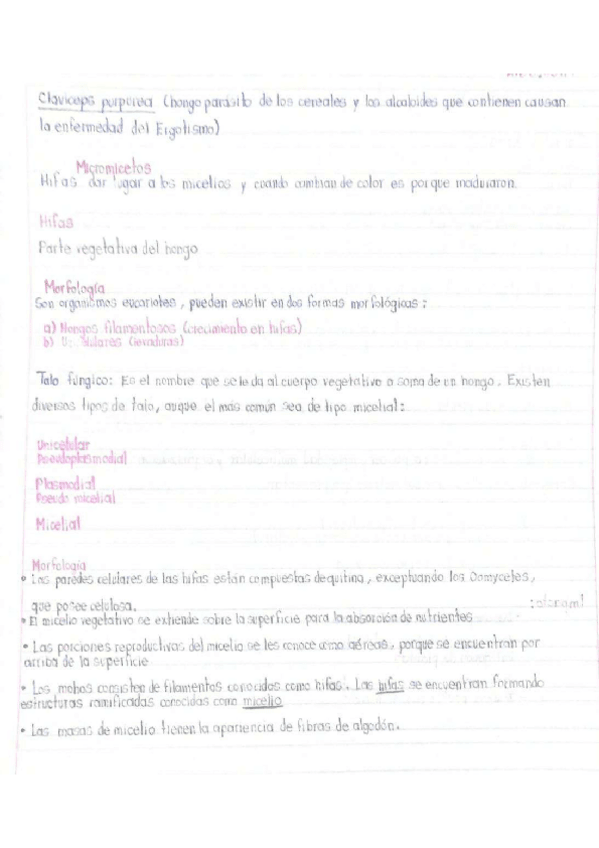 Claviceps purpurea (hongo parásito de los cereales y los alcaloides que contienen causan
la enfermedad del Ergotismo)
Micromicetos
Hifas dar lugar a los micelios y cuando cambian de color es porque maduraron.
Hifas
Parte vegetativa del hongo
Morfología
Son organismos eucariotes, pueden existir en dos formas morfológicas:
a) Hongos filamentosos (crecimiento en hifas)
b) (levaduras)
Talo fúngico: Es el nombre que se le da al cuerpo vegetativo o soma de un hongo. Existen
diversos tipos de talo, auque el más común sea de tipo micelial:
Unicelular
Pseudoplasmodial
Plasmodial
Pseudo micelial
Micelial
Morfología
• Las paredes celulares de las hifas están compuestas de quitina, exceptuando los Oomycetes,
que posee celulosa.
• El micelio vegetativo se extiende sobre la superficie para la absorción de nutrientes
• Las porciones reproductivas del micelio se les conoce como aéreas, porque se encuentran por
arriba de la superficie
• Los mohos consisten de filamentos conocidos como hifas. Las hifas se encuentran formando
estructuras ramificadas conocidas como micelio
• Las masas de micelio tienen la apariencia de fibras de algodón.